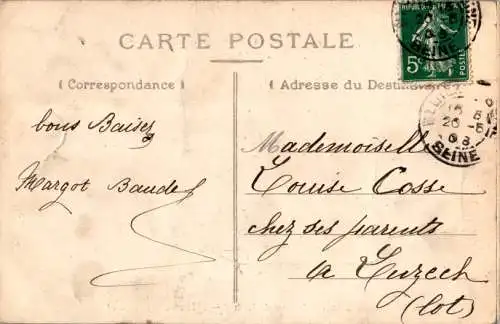 CARTE POSTALE
( Correspondance )
( Adresse du Destinataire )
5c
POSTES
SEINE
bons Baisez
Margot Baude
Mademoiselle
Louise Cosse
chez ses parents
a Luzech
(Lot)
26 - 5
08
SEINE